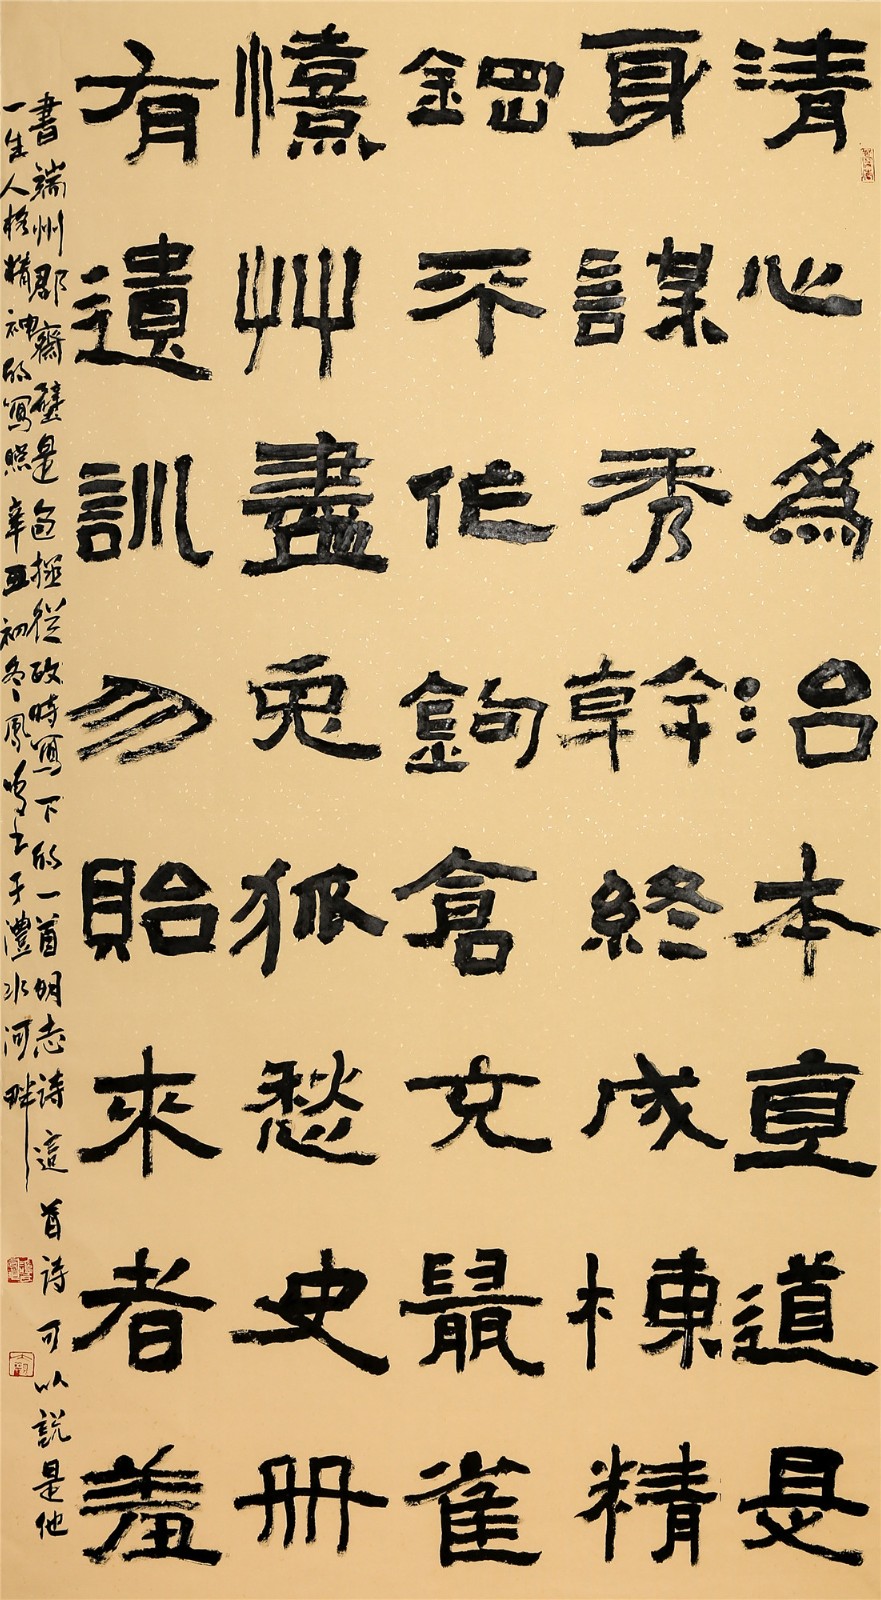 清心爲治本直道是
身謀秀幹終成棟精
鋼不作鉤倉充鼠雀
憘艸盡兎狐愁史冊
有遺訓勿貽來者羞
書端州郡齋壁是包拯從政時寫下的一首明志詩這首詩可以說是他
一生人格精神的寫照辛丑初冬鳳鸣书于澧水河畔